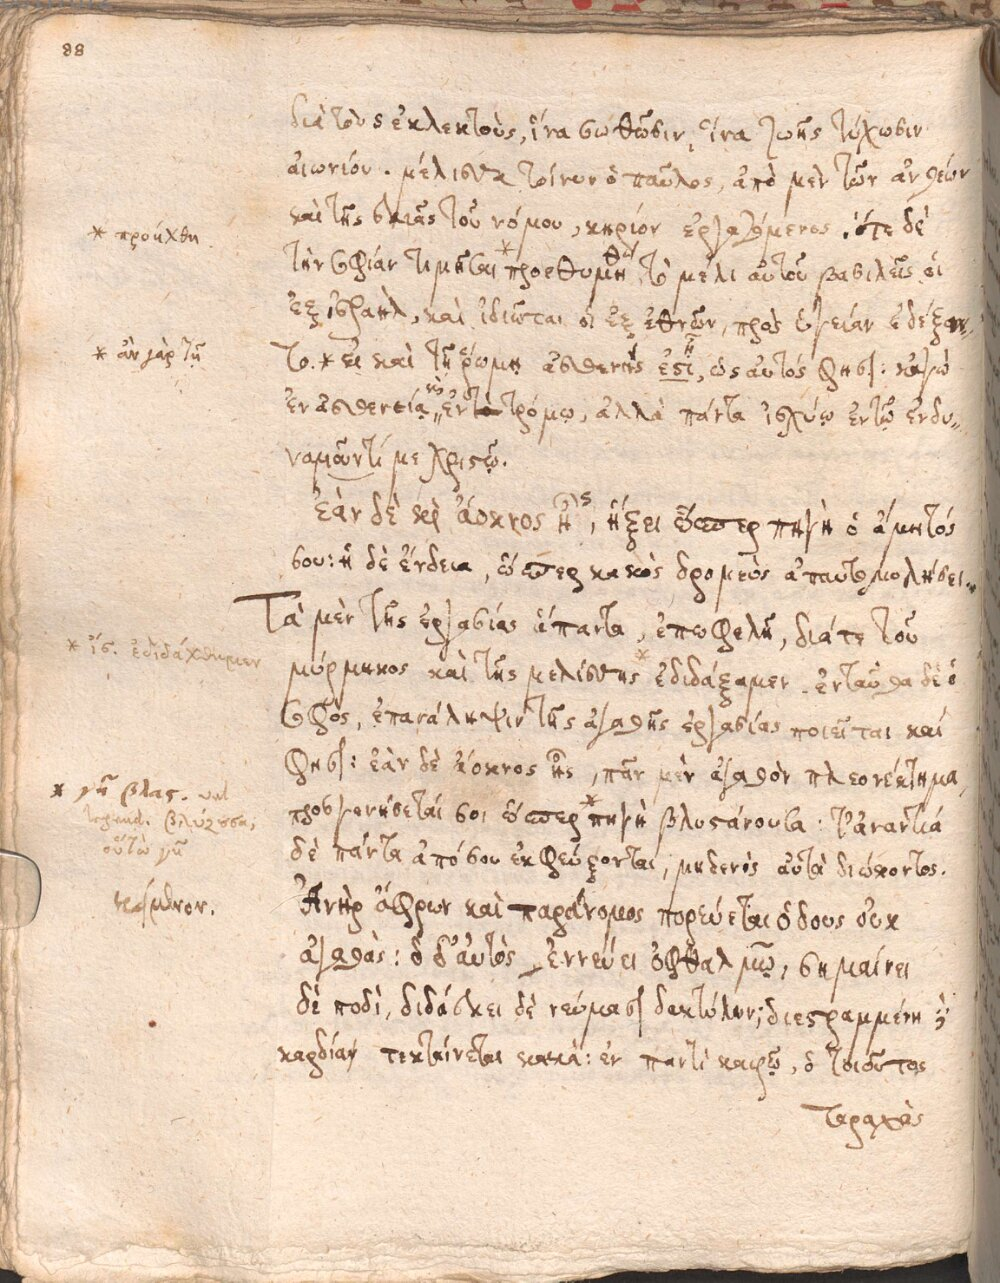 88
διὰ τοὺς ἐκλεκτοὺς, ἵνα σωθῶσιν, ἵνα ζωῆς τύχωσιν
αἰωνίου. μέλισσα τοίνυν ὁ παῦλος, ἀπὸ μὲν τῶν ἀνθέων
καὶ τῆς σκιᾶς τοῦ νόμου, κηρίον ἐργαζόμενος, ὅτε δὲ
* προήχθη
τὴν σοφίαν τιμήσας * τὸ μέλι αὐτοῦ βασιλεῖς οἱ
ἐξ ἰσραὴλ, καὶ ἰδιῶται οἱ ἐξ ἐθνῶν, πρὸς ὑγείαν ἐδέξαν„
* ἂν γὰρ τῇ
το. * εἰ καὶ τῇ ῥώμῃ ἀσθενὴς , ὡς αὐτὸς φησὶ: κἀγὼ
ἐν ἀσθενείᾳ, κὶ ἐν τρόμῳ, ἀλλὰ πάντα ἰσχύω ἐν τῷ ἐνδυ„
ναμοῦντί με χριστῷ.
Ἐὰν δὲ κὶ ἄοκνος ᾖς, ἥξει ὥσπερ πηγὴ ὁ ἀμητός
σου: ἡ δὲ ἔνδεια, ὥσπερ κακὸς δρομεὺς ἀπαυτομολήσει..
Τὰ μὲν τῆς ἐργασίας ἅπαντα, ἐπωφελῆ, διά τε τοῦ
* ἴσ. ἐδιδάχθημεν
μύρμηκος καὶ τῆς μελίσσης * ἐδιδάξαμεν. ἐνταῦθα δὲ ὁ
σοφὸς, ἐπανάληψιν τῆς ἀγαθῆς ἐργασίας ποιεῖται καί
φησὶ: ἐὰν δὲ ἄοκνος ᾖς, πᾶν μὲν ἀγαθὸν πλεονέκτημα
* γῆ βλας.
βλύζουσα;
οὕτω γῆ
προσγενήσεταί σοι ὥσπερ * πηγὴ βλυστάνουσα: τἀναντία
δὲ πάντα ἀπό σου ἐκφεύξονται, μηδενὸς αὐτὰ διώκοντος.
κείμενον.
Ἀνὴρ ἄφρων καὶ παράνομος πορεύεται ὁδοὺς οὐκ
ἀγαθάς: ὁ δ' αὐτὸς, ἐννεύει ὀφθαλμῷ, σημαίνει
δὲ ποδὶ, διδάσκει δὲ νεύμασι δακτύλων; διεστραμμένῃ
καρδίᾳ τεκταίνεται κακὰ: ἐν παντὶ καιρῷ, ὁ τοιοῦτος
ταραχὰς